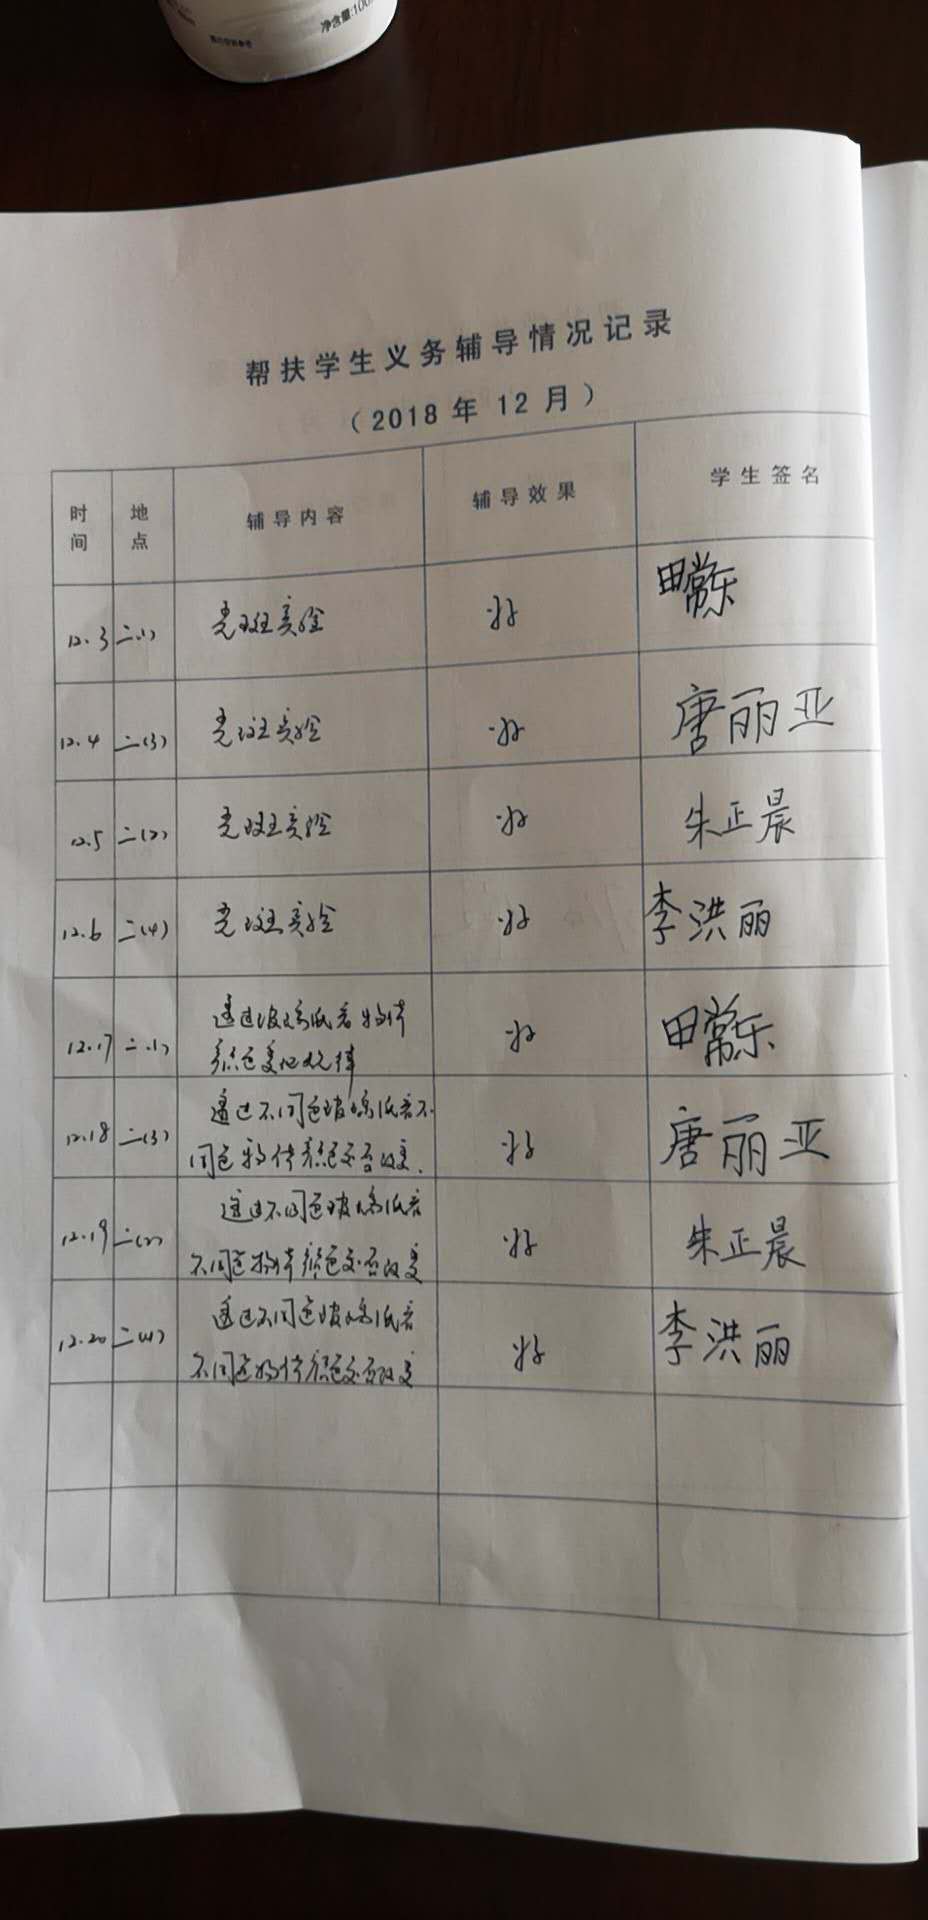 净含量:100
帮扶学生义务辅导情况记录
（2018 年 12 月）
时间 地点 辅导内容 辅导效果 学生签名
12.3 二(1) 光斑实验 好 田常乐
12.4 二(3) 光斑实验 好 唐丽亚
12.5 二(2) 光斑实验 好 朱正晨
12.6 二(4) 光斑实验 好 李洪丽
12.17 二(1) 透过玻璃纸看物体 好 田常乐
颜色变化规律
12.18 二(3) 透过不同色玻璃纸看不 好 唐丽亚
同色物体颜色是否改变.
12.19 二(2) 透过不同色玻璃纸看 好 朱正晨
不同色物体颜色是否改变
12.20 二(4) 透过不同色玻璃纸看 好 李洪丽
不同色物体颜色是否改变